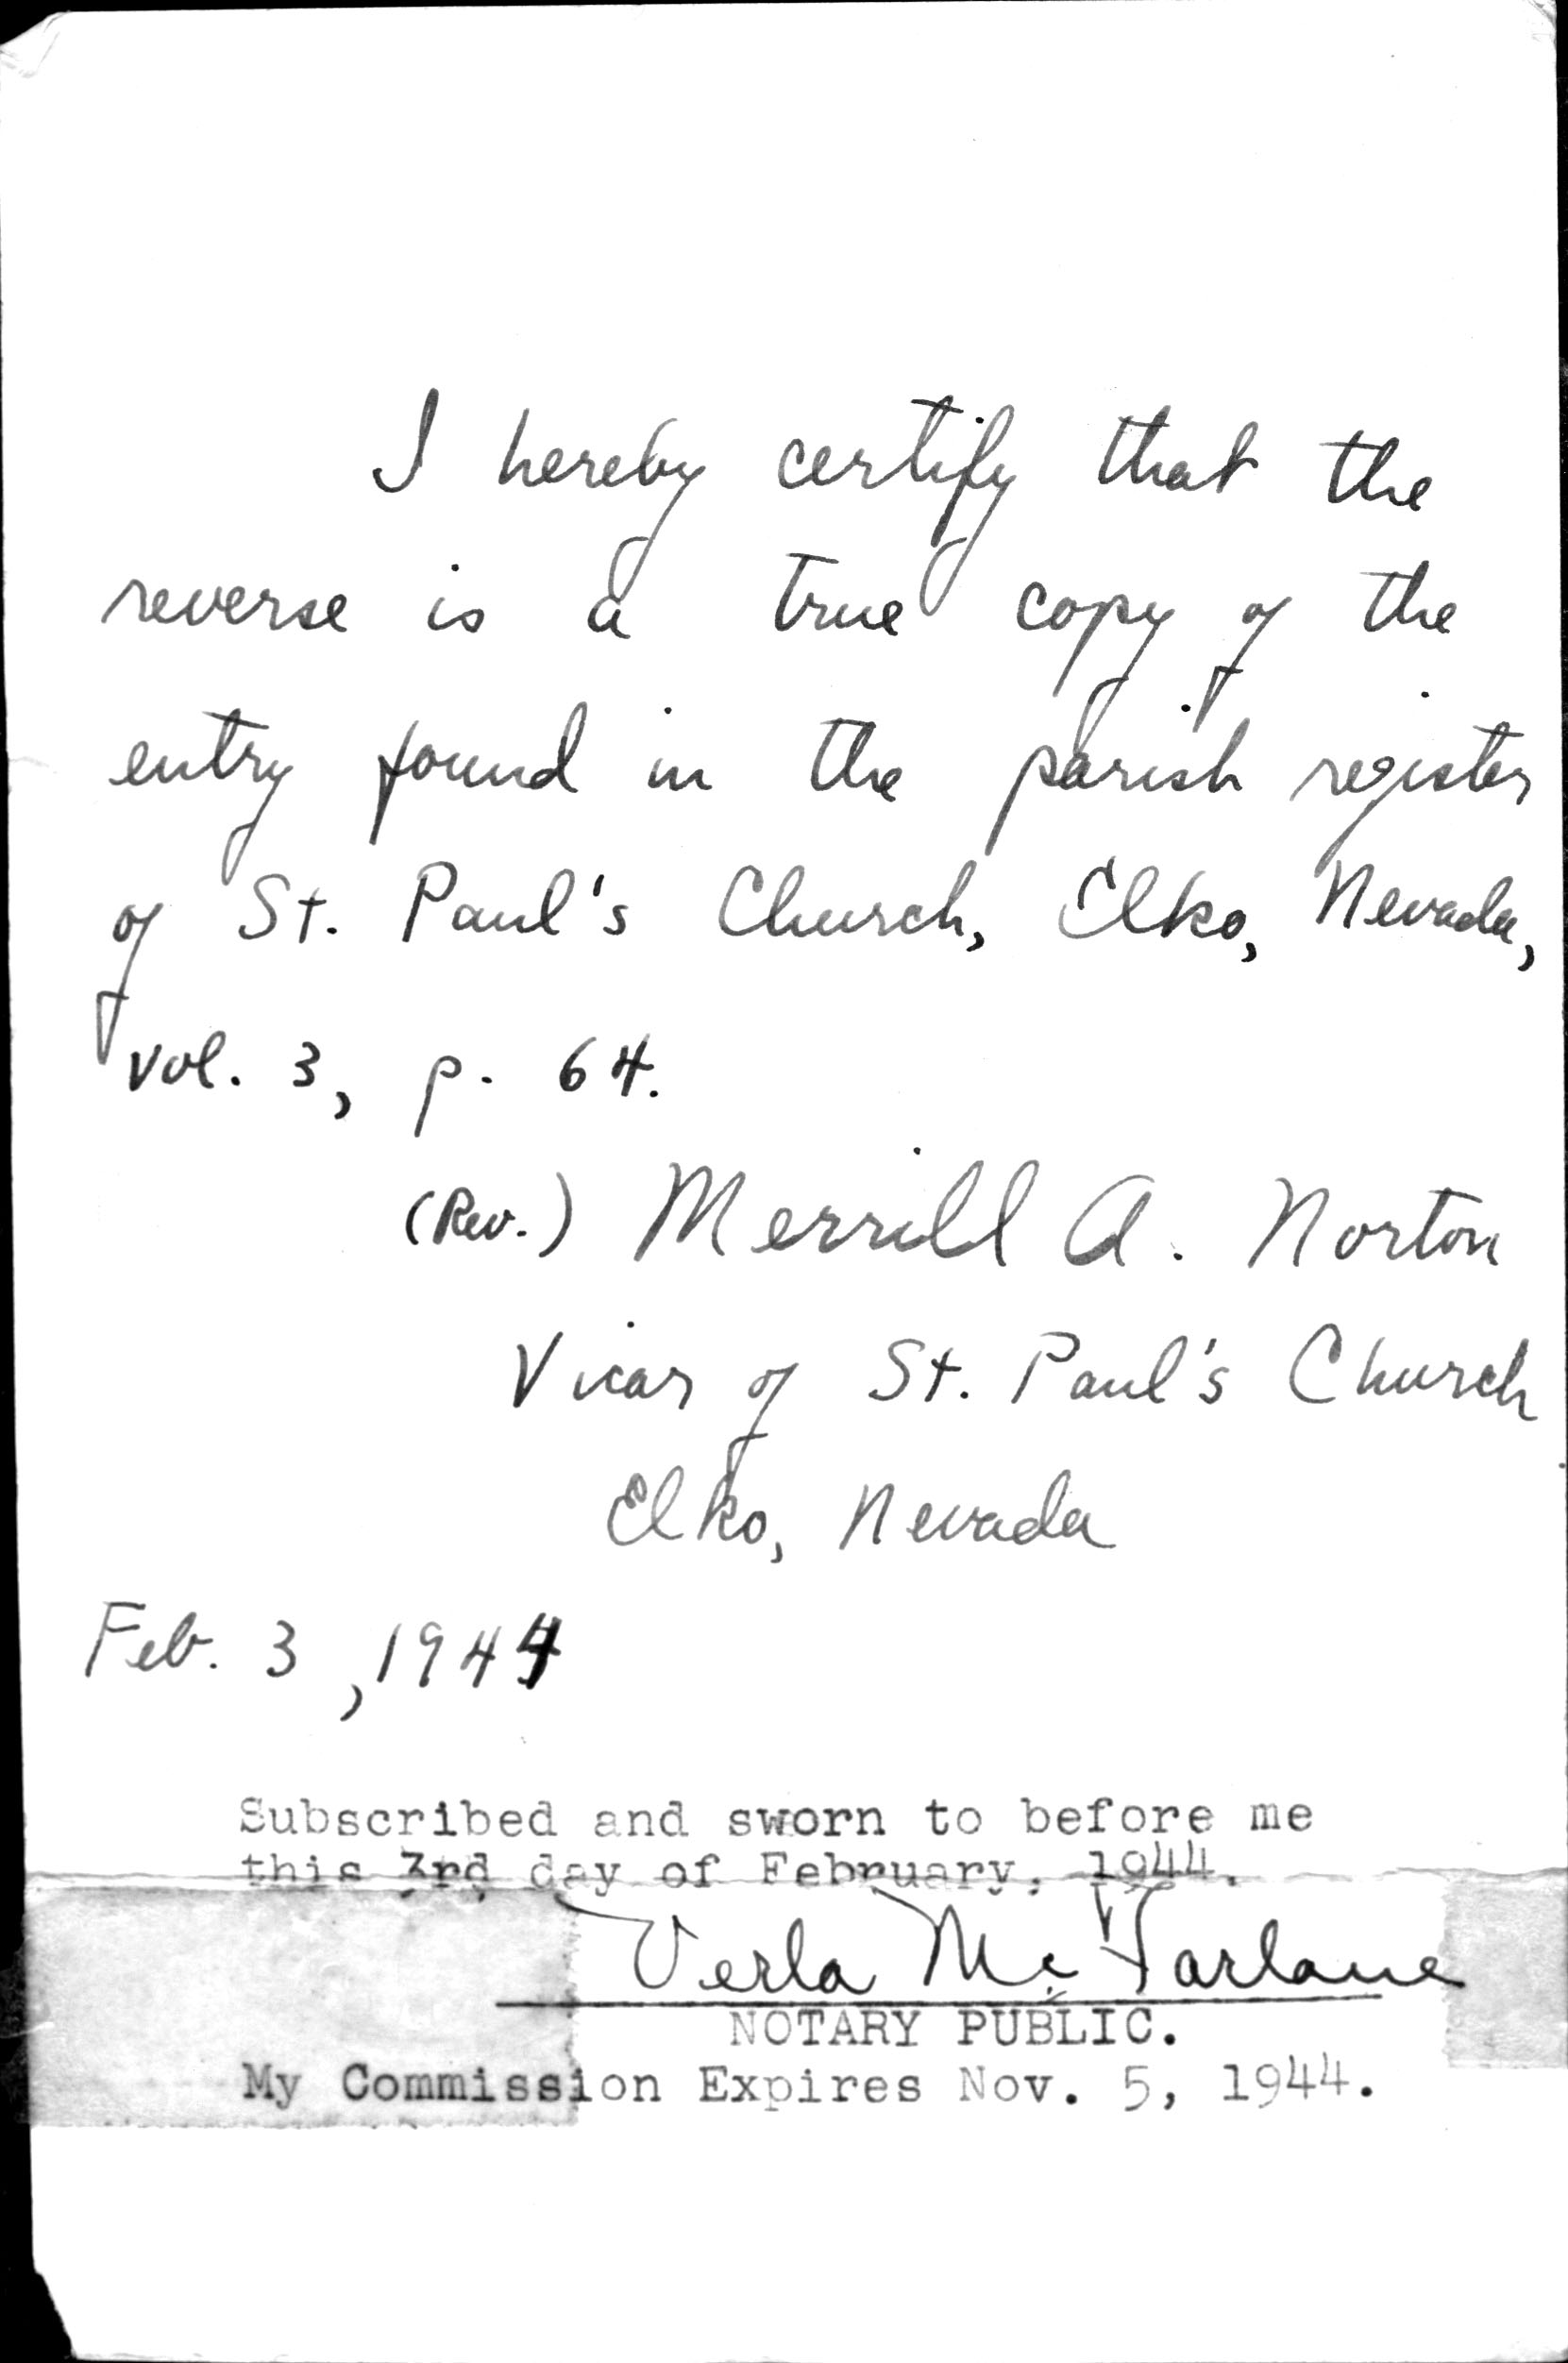 I hereby certify that the
reverse is a true copy of the
entry found in the parish register
of St. Paul's Church, Elko, Nevada,
vol. 3, p. 64.
(Rev.) Merrill A. Norton
Vicar of St. Paul's Church
Elko, Nevada
Feb. 3, 1944
Subscribed and sworn to before me
this 3rd day of February, 1944.
Verla McFarlane
NOTARY PUBLIC.
My Commission Expires Nov. 5, 1944.